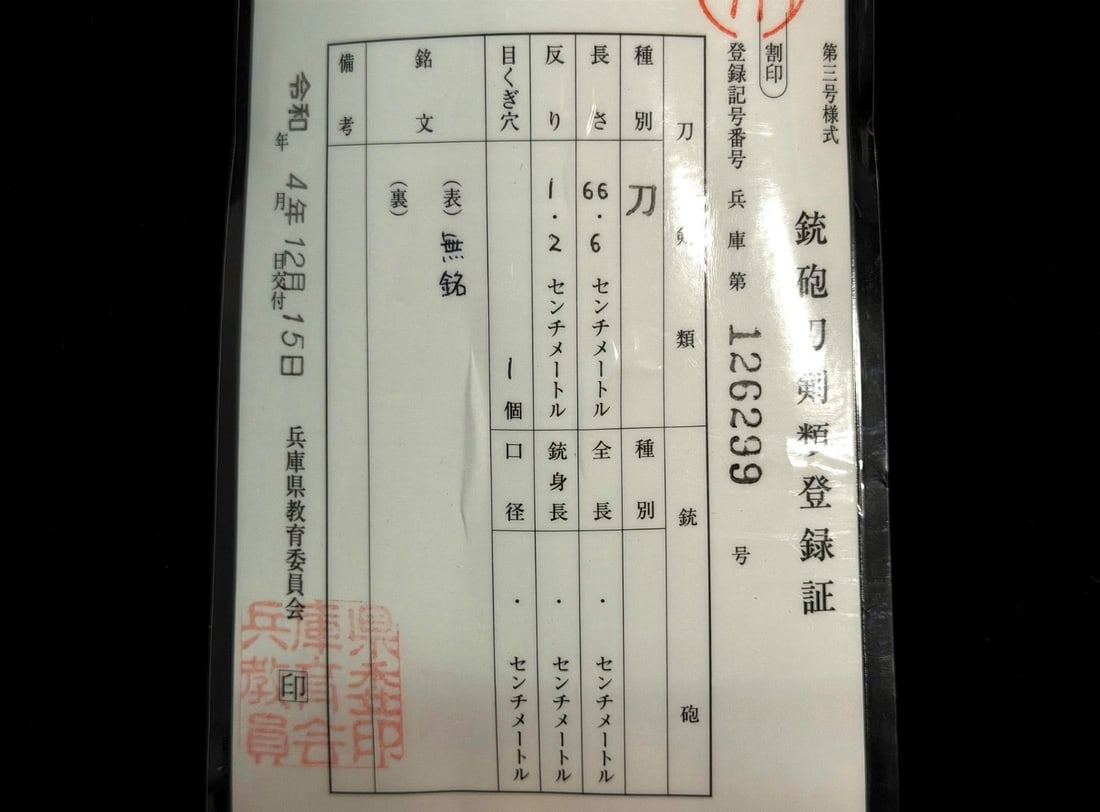 第三号様式
銃砲刀剣類登録証
割印
登録記号番号 兵庫 第 126299 号
刀剣類
銃砲
種別 刀
種別
長さ 66.6 センチメートル
全長 . センチメートル
反り 1.2 センチメートル
銃身長 . センチメートル
目くぎ穴 1個
口径 . センチメートル
銘文
(表) 無銘
(裏)
備考
令和4年12月15日
年 月 日交付
兵庫県教育委員会 印
兵庫県教育委員会印